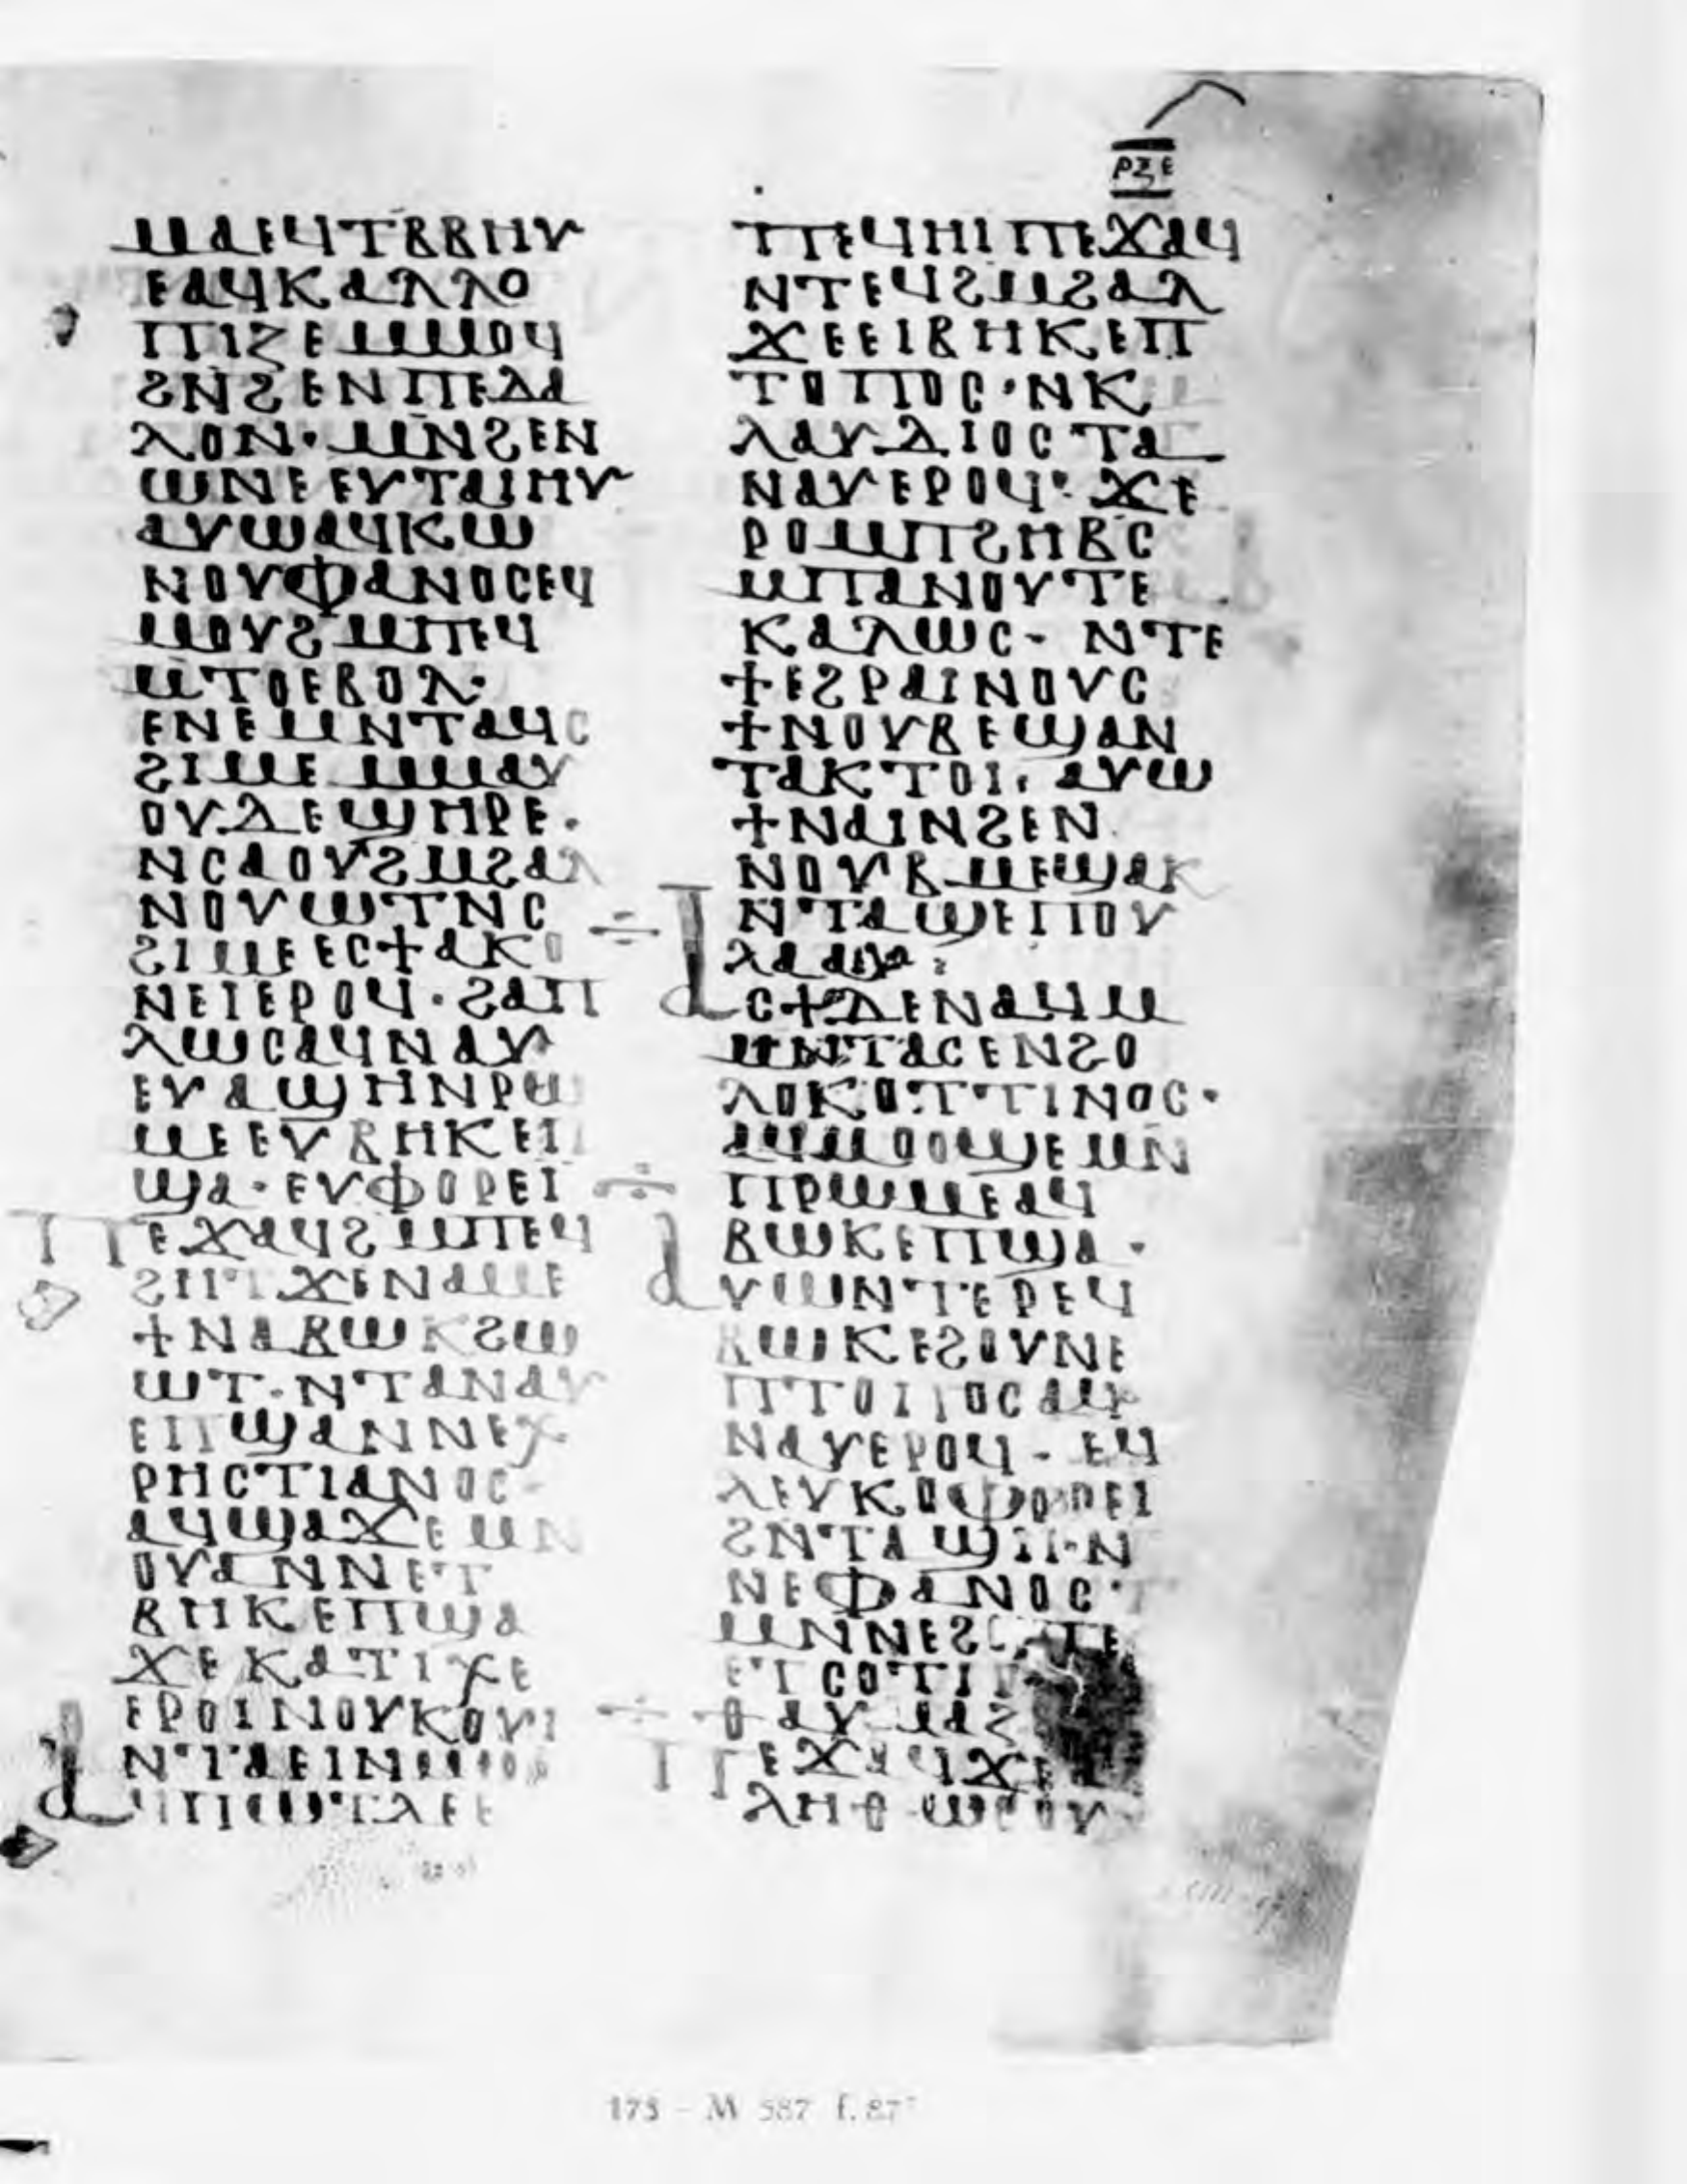 ⲣⲝⲉ
ⲙⲁⲉϥⲧⲃⲃⲏⲩ
ⲉⲁϥⲕⲁⲗⲗⲟ
ⲡⲓⲍⲉⲙⲙⲟϥ
ϩⲛϩⲉⲛⲡⲉⲇⲁ
ⲗⲟⲛ· ⲙⲛϩⲉⲛ
ⲱⲛⲉⲉⲩⲧⲁⲓⲏⲩ
ⲁⲩⲱⲁϥⲕⲱ
ⲛⲟⲩⲫⲁⲛⲟⲥⲉϥ
ⲙⲟⲩϩⲙⲡⲉϥ
ⲙⲧⲟⲉⲃⲟⲗ·
ⲉⲛⲉⲙⲛⲧⲁϥⲥ
ϩⲓⲙⲉⲙⲙⲁⲩ
ⲟⲩⲇⲉϣⲏⲣⲉ·
ⲛⲥⲁⲟⲩϩⲙϩⲁⲗ
ⲛⲟⲩⲱⲧⲛⲥ
ϩⲓⲙⲉⲉⲥϯⲁⲕⲟ
ⲛⲉⲓⲉⲣⲟϥ· ϩⲁⲡ
ⲗⲱⲥⲁϥⲛⲁⲩ
ⲉⲩⲁϣⲏⲛⲣⲱ
ⲙⲉⲉⲩⲃⲏⲕⲉⲡ
ϣⲁ· ⲉⲩⲫⲟⲣⲉⲓ
ⲡⲉϫⲁϥϩⲙⲡⲉϥ
ϩⲏⲧϫⲉⲛⲁⲙⲉ
ϯⲛⲁⲃⲱⲕϩⲱ
ⲱⲧ· ⲛⲧⲁⲛⲁⲩ
ⲉⲡϣⲁⲛⲛⲉⲭ
ⲣⲏⲥⲧⲓⲁⲛⲟⲥ-
ⲁϥϣⲁϫⲉⲙⲛ
ⲟⲩⲁⲛⲛⲉⲧ
ⲃⲏⲕⲉⲡϣⲁ
ϫⲉⲕⲁⲧⲓⲭⲉ
ⲉⲣⲟⲓⲛⲟⲩⲕⲟⲩⲓ
ⲛⲧⲁⲉⲓⲛⲙⲙⲟⲕ
ⲁϥⲡⲱⲧⲗⲉⲉ
ⲡⲉϥⲏⲓⲡⲉϫⲁϥ
ⲛⲧⲉϥϩⲙϩⲁⲗ
ϫⲉⲉⲓⲃⲏⲕⲉⲡ
ⲧⲟⲡⲟⲥ· ⲛⲕ
ⲗⲁⲩⲇⲓⲟⲥⲧⲁ
ⲛⲁⲩⲉⲣⲟϥ· ϫⲉ
ⲣⲟⲙⲡϩⲏⲃⲥ
ⲙⲡⲁⲛⲟⲩⲧⲉ
ⲕⲁⲗⲱⲥ- ⲛⲧⲉ
ϯⲉϩⲣⲁⲓⲛⲟⲩⲥ
ϯⲛⲟⲩⲃⲉϣⲁⲛ
ⲧⲁⲕⲧⲟⲓ· ⲁⲩⲱ
ϯⲛⲁⲓⲛϩⲉⲛ
ⲛⲟⲩⲃⲙⲉϣⲁⲕ
ⲛⲧⲁϣⲉⲡⲟⲩ
ⲗⲁⲁⲩ
ⲁⲥϯⲇⲉⲛⲁϥⲙ
ⲙⲛⲧⲁⲥⲉⲛϩⲟ
ⲗⲟⲕⲟⲧⲧⲓⲛⲟⲥ·
ⲁϥⲙⲟⲟϣⲉⲙⲛ
ⲡⲣⲱⲙⲉⲁϥ
ⲃⲱⲕⲉⲡϣⲁ·
ⲁⲩⲱⲛⲧⲉⲣⲉϥ
ⲃⲱⲕⲉϩⲟⲩⲛⲉ
ⲡⲧⲟⲡⲟⲥⲁϥ
ⲛⲁⲩⲉⲣⲟϥ- ⲉϥ
ⲗⲉⲩⲕⲟⲫⲟⲣⲉⲓ
ϩⲛⲧⲁϣⲏ·ⲛ
ⲛⲉⲫⲁⲛⲟⲥ·
ⲙⲛⲛⲉϩⲃⲥⲧⲉ
ⲉⲧⲥⲟⲧⲡ
ⲑⲁⲩⲙⲁⲍ
ⲡⲉϫⲁϥϫⲉ
ⲁⲗⲏⲑⲱⲥⲟⲩ
175 - M 587 f. 87ʳ